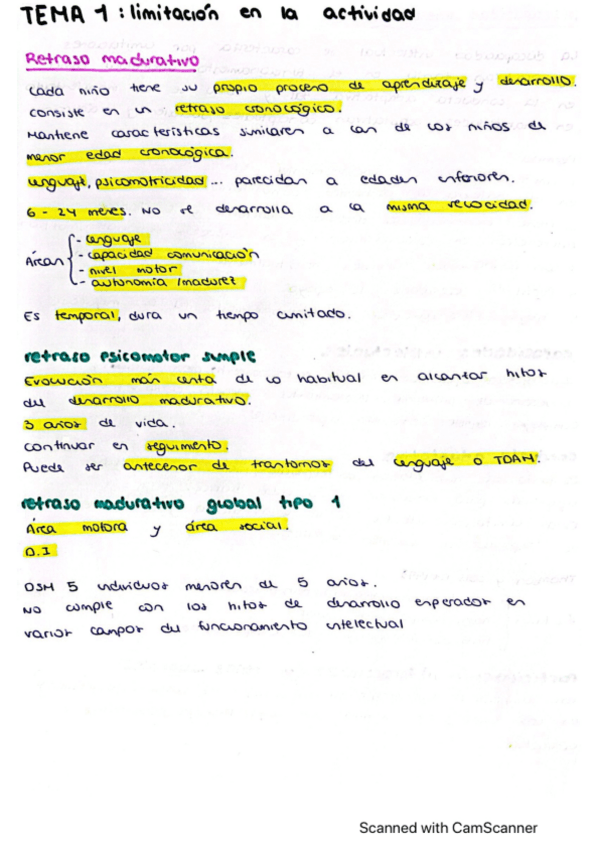 TEMA 1: limitación en la actividad
Retraso madurativo
Cada niño tiene su propio proceso de aprendizaje y desarrollo.
Consiste en un retraso cronológico.
Mantiene características similares a las de los niños de
menor edad cronológica.
Lenguaje, psicomotricidad... parecidas a edades inferiores.
6 - 24 meses. No se desarrolla a la misma velocidad.
Áreas
- lenguaje
- capacidad comunicación
- nivel motor
- autonomía /madurez
Es temporal, dura un tiempo limitado.
retraso psicomotor simple
Evolución más lenta de lo habitual en alcanzar hitos
del desarrollo madurativo.
3 años de vida.
Continuar en seguimiento.
Puede ser antecesor de trastornos del lenguaje o TDAH.
retraso madurativo global tipo 1
Área motora y área social.
D.I
DSM 5 individuos menores de 5 años.
No cumple con los hitos de desarrollo esperados en
varios campos del funcionamiento intelectual
Scanned with CamScanner